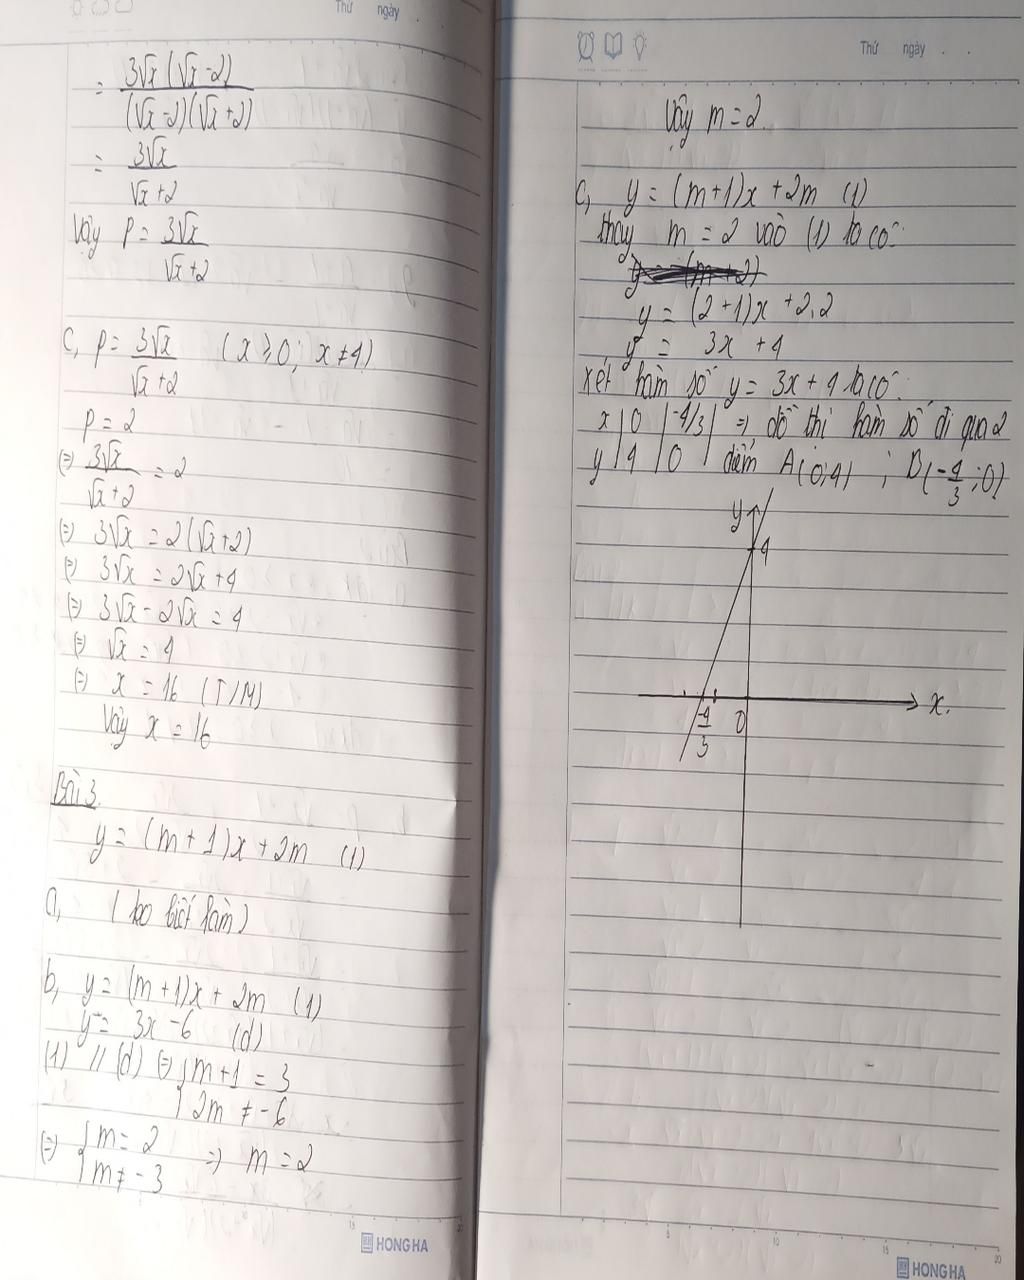 Thứ ngày . .
= 3√x (√x - 2) / (√x - 2)(√x + 2)
= 3√x / √x + 2
Vậy P = 3√x / √x + 2
C, P = 3√x / √x + 2 (x ⩾ 0; x ≠ 4)
P = 2
(=) 3√x / √x + 2 = 2
(=) 3√x = 2(√x + 2)
(=) 3√x = 2√x + 4
(=) 3√x - 2√x = 4
(=) √x = 4
(=) x = 16 (T/M)
Vậy x = 16
Bài 3.
y = (m + 1)x + 2m (1)
a, (ko biết làm)
b, y = (m + 1)x + 2m (1)
y = 3x - 6 (d)
(1) // (d) (=) { m + 1 = 3
2m ≠ -6
(=) { m = 2
m ≠ -3 => m = 2
HONG HA
Thứ ngày . .
Vậy m = 2.
C, y = (m + 1)x + 2m (1)
thay m = 2 vào (1) ta có:
y = (m + 2)
y = (2 + 1)x + 2.2
y = 3x + 4
Xét hàm số y = 3x + 4 ta có:
x | 0 | -4/3 | => đồ thị hàm số đi qua 2
y | 4 | 0 | điểm A(0;4) ; B(-4/3;0)
y
4
-4/3 0 x.
5 10 15 20
HONG HA